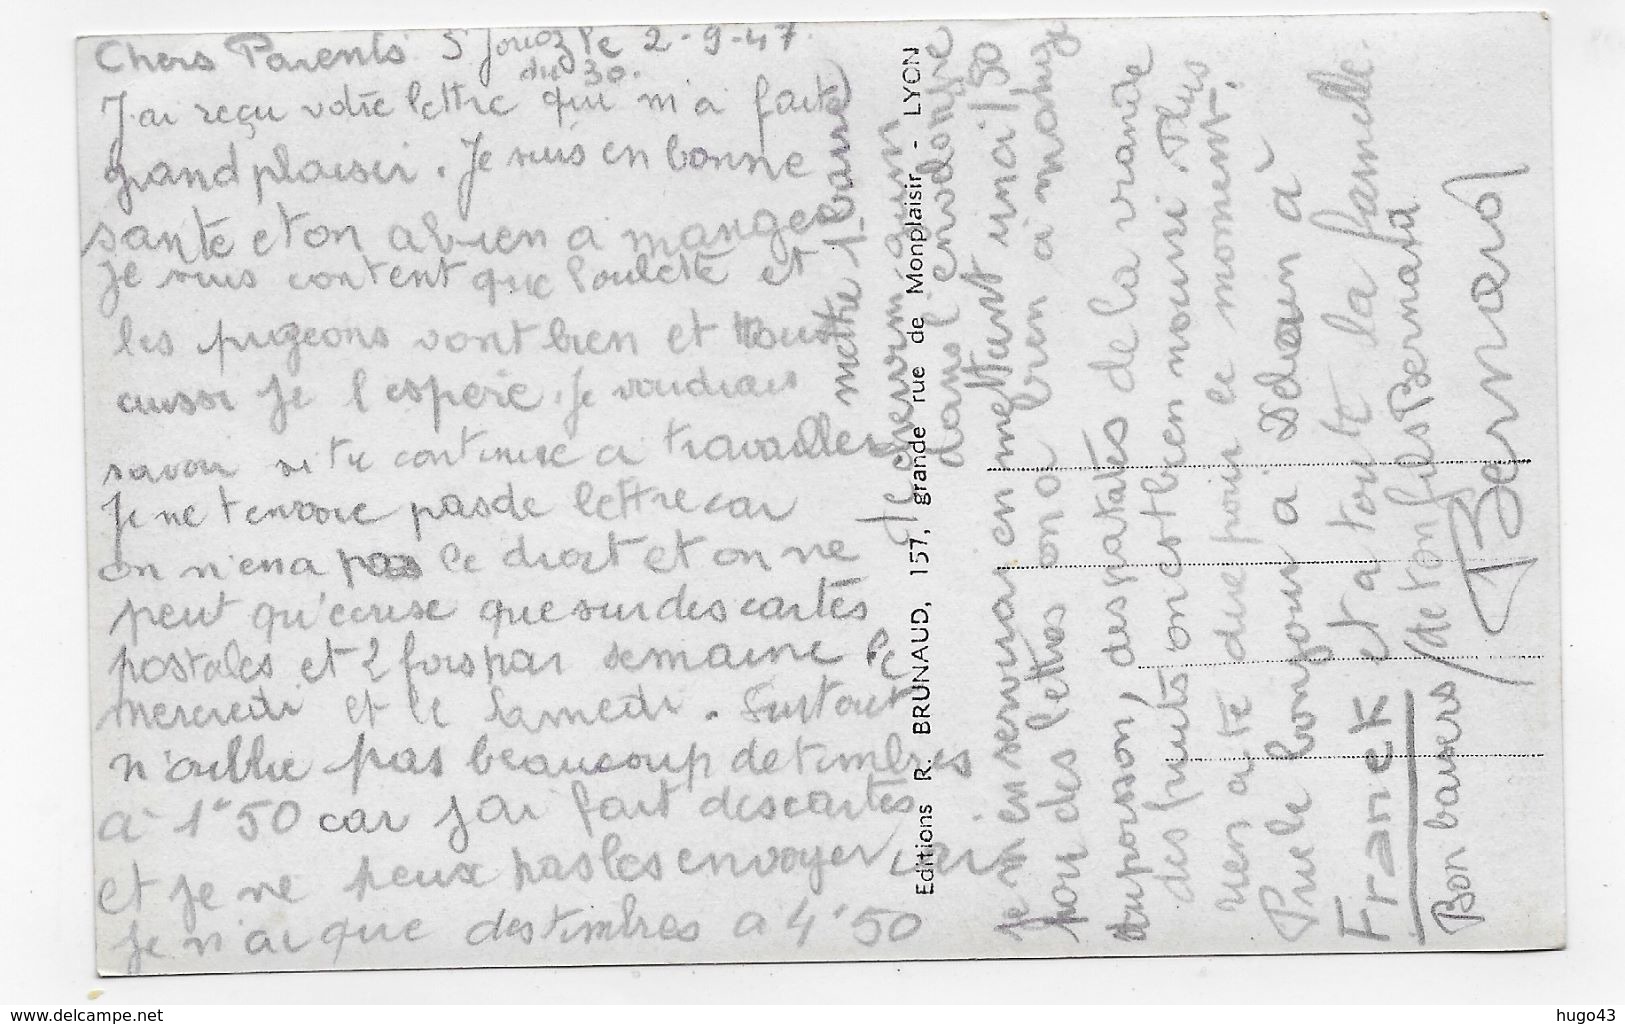 Chers Parents St Jorioz le 2-9-47.
du 30.
J'ai reçu votre lettre qui m'a faite
grand plaisir. Je suis en bonne
santé et on a bien a manger
je suis content que Poulette et
les pigeons vont bien et tous
aussi je l'espère. Je voudrais
savoir si tu continue a travailler
Je ne t'envoie pas de lettre car
on n'en a pas le droit et on ne
peut qu'écrire que sur des cartes
postales et 2 fois par semaine le
mercredi et le Samedi. Surtout
n'oublie pas beaucoup de timbres
a 1'50 car j'ai fait des cartes
et je ne peux pas les envoyer, car
je n'ai que des timbres a 4'50
mettre 1
dans l'enveloppe
je m'en servirai en mettant moi 1'50
pour des lettres on a bien à manger
du poisson, des patates de la viande
des fruits on est bien nourri. Plus
rien a te dire pour le moment.
le bonjour a
Franek et a toute la famille.
Bon baisers / de ton fils Bernard
Bernard
Editions R. BRUNAUD, 157, grande rue de Monplaisir - LYON
www.delcampe.net
hugo43